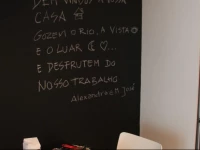 BEM VINDOS À VOSSA
CASA
GOZEM O RIO, A VISTA
E O LUAR ☾ ♡...
E DESFRUTEM DO
NOSSO TRABALHO
Alexandra e José